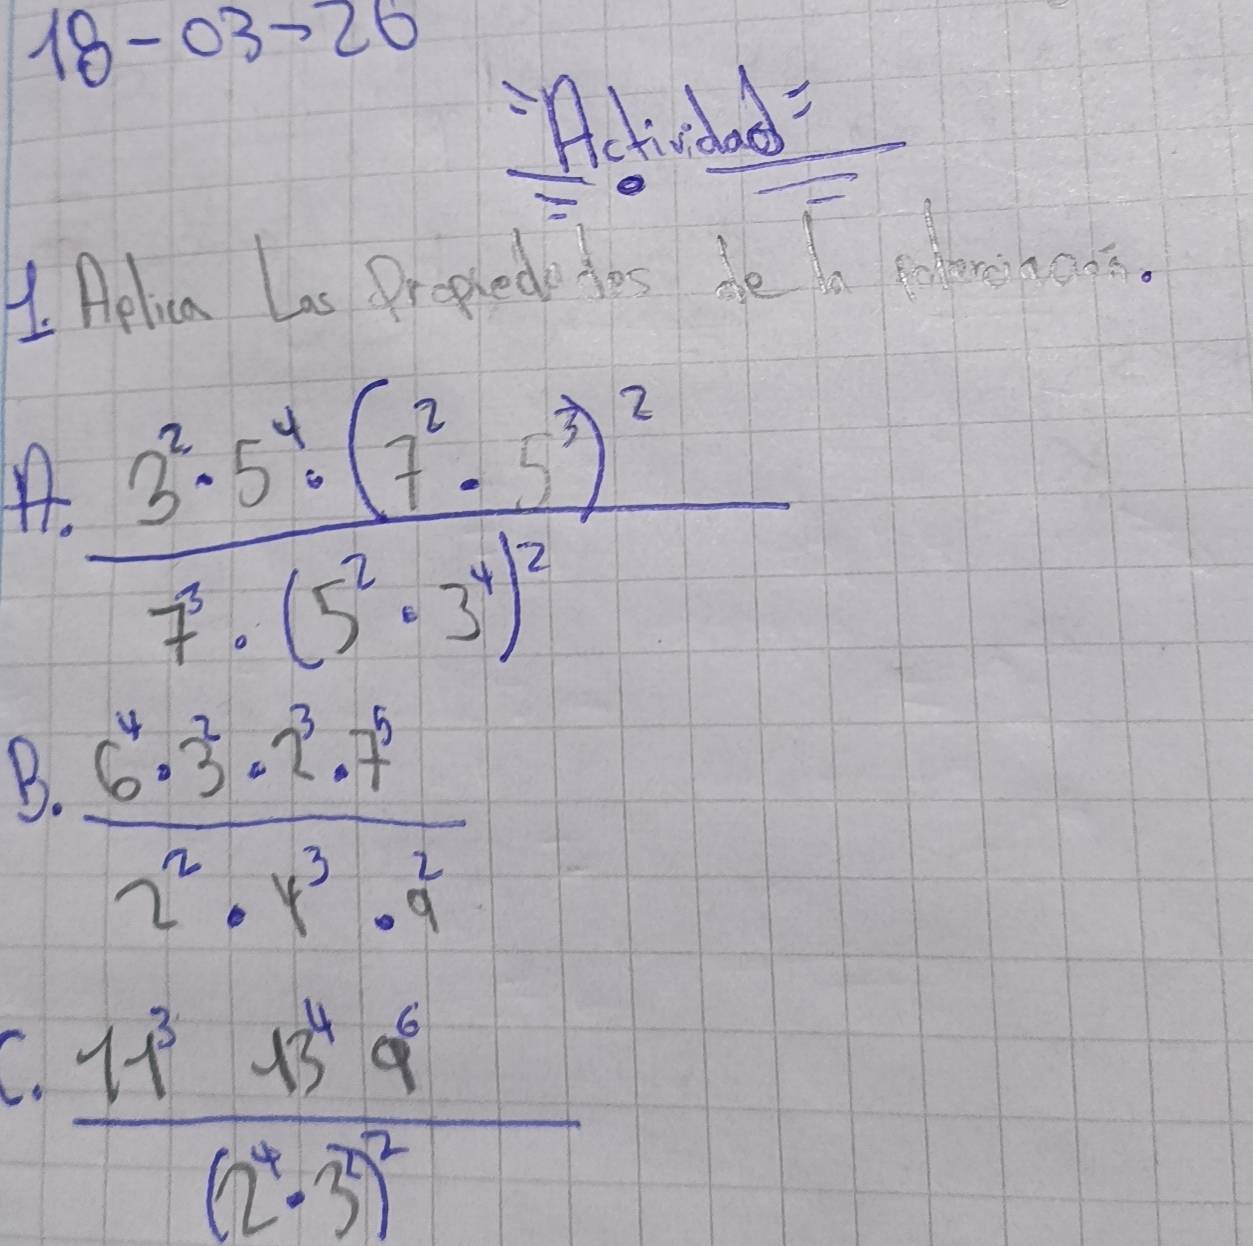 18-03-26
"Actividad"
1. Aplica Las Propiedades de la potenciación.
A. 3² · 5⁴ · (7² · 5³)²
7³ · (5² · 3⁴)²
B. 6⁴ · 3² · 2³ · 7⁵
2² · 4³ · 9²
C. 11³ 13⁴ 9⁶
(2⁴ · 3²)²